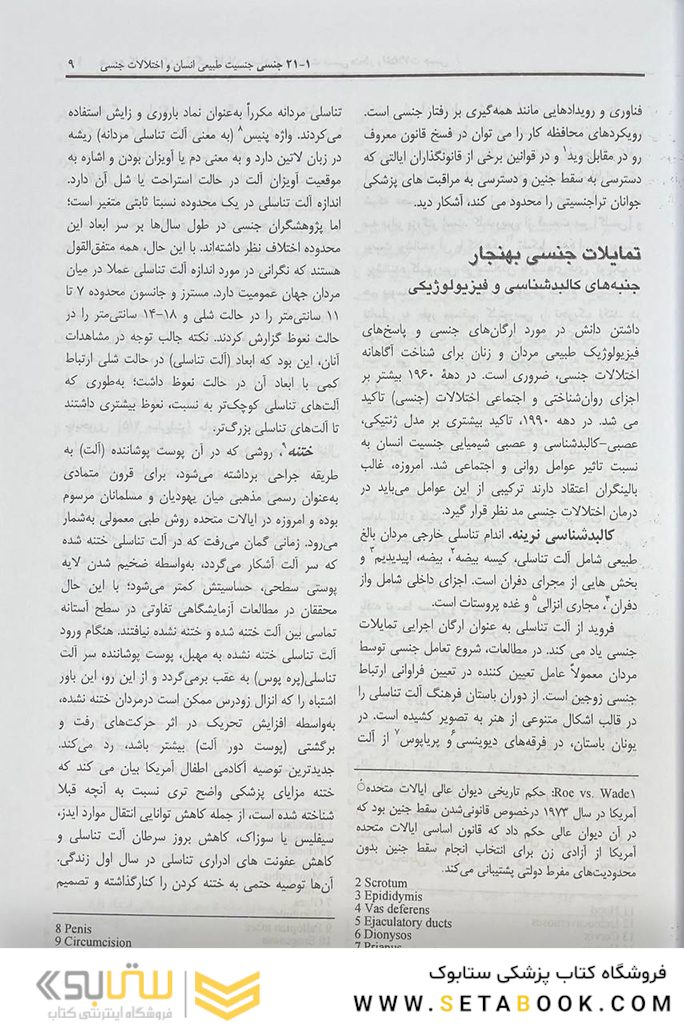 ۲۱-۱ جنسی جنسیت طبیعی انسان و اختلالات جنسی ۹
فناوری و رویدادهایی مانند همه‌گیری بر رفتار جنسی است.
رویکردهای محافظه کار را می توان در فسخ قانون معروف
رو در مقابل وید۱ و در قوانین برخی از قانونگذاران ایالتی که
دسترسی به سقط جنین و دسترسی به مراقبت های پزشکی
جوانان تراجنسیتی را محدود می کند، آشکار دید.
تمایلات جنسی بهنجار
جنبه‌های کالبدشناسی و فیزیولوژیکی
داشتن دانش در مورد ارگان‌های جنسی و پاسخ‌های
فیزیولوژیک طبیعی مردان و زنان برای شناخت آگاهانه
اختلالات جنسی، ضروری است. در دههٔ ۱۹۶۰ بیشتر بر
اجزای روان‌شناختی و اجتماعی اختلالات (جنسی) تاکید
می شد. در دهه ۱۹۹۰، تاکید بیشتری بر مدل ژنتیکی،
عصبی-کالبدشناسی و عصبی شیمیایی جنسیت انسان به
نسبت تاثیر عوامل روانی و اجتماعی شد. امروزه، غالب
بالینگران اعتقاد دارند ترکیبی از این عوامل می‌باید در
درمان اختلالات جنسی مد نظر قرار گیرد.
کالبدشناسی نرینه. اندام تناسلی خارجی مردان بالغ
طبیعی شامل آلت تناسلی، کیسه بیضه۲، بیضه، اپیدیدیم۳ و
بخش هایی از مجرای دفران است. اجزای داخلی شامل واز
دفران۴، مجاری انزالی۵ و غده پروستات است.
فروید از آلت تناسلی به عنوان ارگان اجرایی تمایلات
جنسی یاد می کند. در مطالعات، شروع تعامل جنسی توسط
مردان معمولاً عامل تعیین کننده در تعیین فراوانی ارتباط
جنسی زوجین است. از دوران باستان فرهنگ آلت تناسلی را
در قالب اشکال متنوعی از هنر به تصویر کشیده است. در
یونان باستان، در فرقه‌های دیونیسی۶ و پریاپوس۷ از آلت
۱Roe vs. Wade: حکم تاریخی دیوان عالی ایالات متحدهٔ
آمریکا در سال ۱۹۷۳ درخصوص قانونی‌شدن سقط جنین بود که
در آن دیوان عالی حکم داد که قانون اساسی ایالات متحده
آمریکا از آزادی زن برای انتخاب انجام سقط جنین بدون
محدودیت‌های مفرط دولتی پشتیبانی می‌کند.
2 Scrotum
3 Epididymis
4 Vas deferens
5 Ejaculatory ducts
6 Dionysos
7 Priapus
تناسلی مردانه مکرراً به‌عنوان نماد باروری و زایش استفاده
می‌کردند. واژه پنیس۸ (به معنی آلت تناسلی مردانه) ریشه
در زبان لاتین دارد و به معنی دم یا آویزان بودن و اشاره به
موقعیت آویزان آلت در حالت استراحت یا شل آن دارد.
اندازه آلت تناسلی در یک محدوده نسبتا ثابتی متغیر است؛
اما پژوهشگران جنسی در طول سال‌ها بر سر ابعاد این
محدوده اختلاف نظر داشته‌اند. با این حال، همه متفق‌القول
هستند که نگرانی در مورد اندازه آلت تناسلی عملا در میان
مردان جهان عمومیت دارد. مسترز و جانسون محدوده ۷ تا
۱۱ سانتی‌متر را در حالت شلی و ۱۸-۱۴ سانتی‌متر را در
حالت نعوظ گزارش کردند. نکته جالب توجه در مشاهدات
آنان، این بود که ابعاد (آلت تناسلی) در حالت شلی ارتباط
کمی با ابعاد آن در حالت نعوظ داشت؛ به‌طوری که
آلت‌های تناسلی کوچک‌تر به نسبت، نعوظ بیشتری داشتند
تا آلت‌های تناسلی بزرگ‌تر.
ختنه۹، روشی که در آن پوست پوشاننده (آلت) به
طریقه جراحی برداشته می‌شود، برای قرون متمادی
به‌عنوان رسمی مذهبی میان یهودیان و مسلمانان مرسوم
بوده و امروزه در ایالات متحده روش طبی معمولی به‌شمار
می‌رود. زمانی گمان می‌رفت که در آلت تناسلی ختنه شده
که سر آلت آشکار می‌گردد، به‌واسطه ضخیم شدن لایه
پوستی سطحی، حساسیتش کمتر می‌شود؛ با این حال
محققان در مطالعات آزمایشگاهی تفاوتی در سطح آستانه
تماسی بین آلت ختنه شده و ختنه نشده نیافتند. هنگام ورود
آلت تناسلی ختنه نشده به مهبل، پوست پوشاننده سر آلت
تناسلی(پره پوس) به عقب برمی‌گردد و از این رو، این باور
اشتباه را که انزال زودرس ممکن است درمردان ختنه نشده،
به‌واسطه افزایش تحریک در اثر حرکت‌های رفت و
برگشتی (پوست دور آلت) بیشتر باشد، رد می‌کند.
جدیدترین توصیه آکادمی اطفال آمریکا بیان می کند که
ختنه مزایای پزشکی واضح تری نسبت به آنچه قبلا
شناخته شده است، از جمله کاهش توانایی انتقال موارد ایدز،
سیفلیس یا سوزاک، کاهش بروز سرطان آلت تناسلی و
کاهش عفونت های ادراری تناسلی در سال اول زندگی.
آن‌ها توصیه حتمی به ختنه کردن را کنارگذاشته و تصمیم
8 Penis
9 Circumcision
فروشگاه کتاب پزشکی ستابوک
WWW.SETABOOK.COM
ستابوک
فروشگاه اینترنتی کتاب